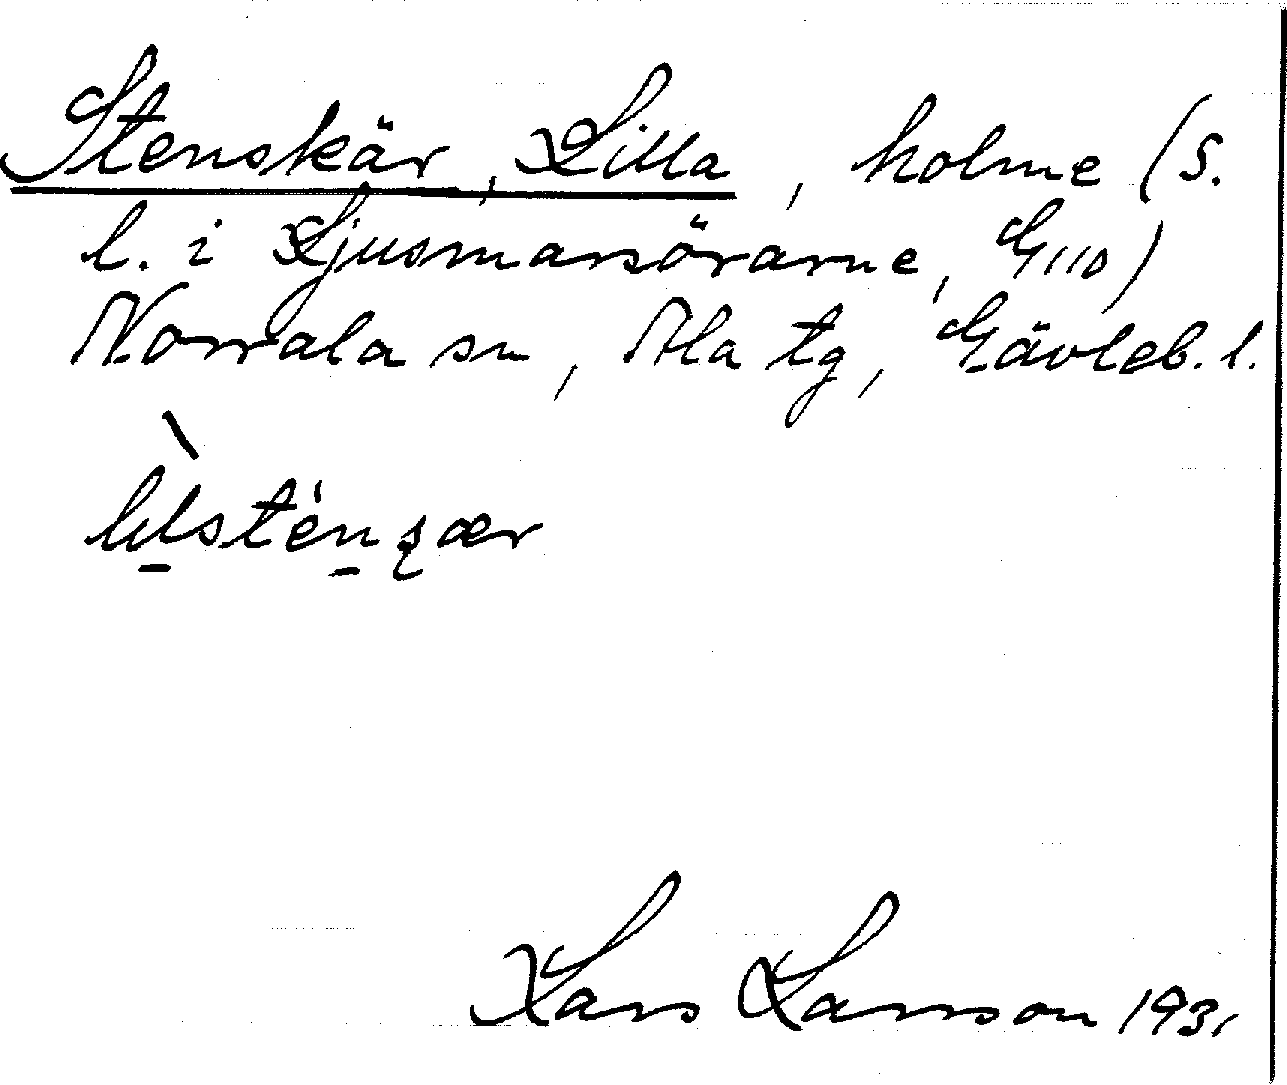 Stenskär, Lilla, holme (S.
l. i Ljusmarsörarne, G110)
Norrala sn, Ala tg, Gävleb. l.
Lars Larsson 1931